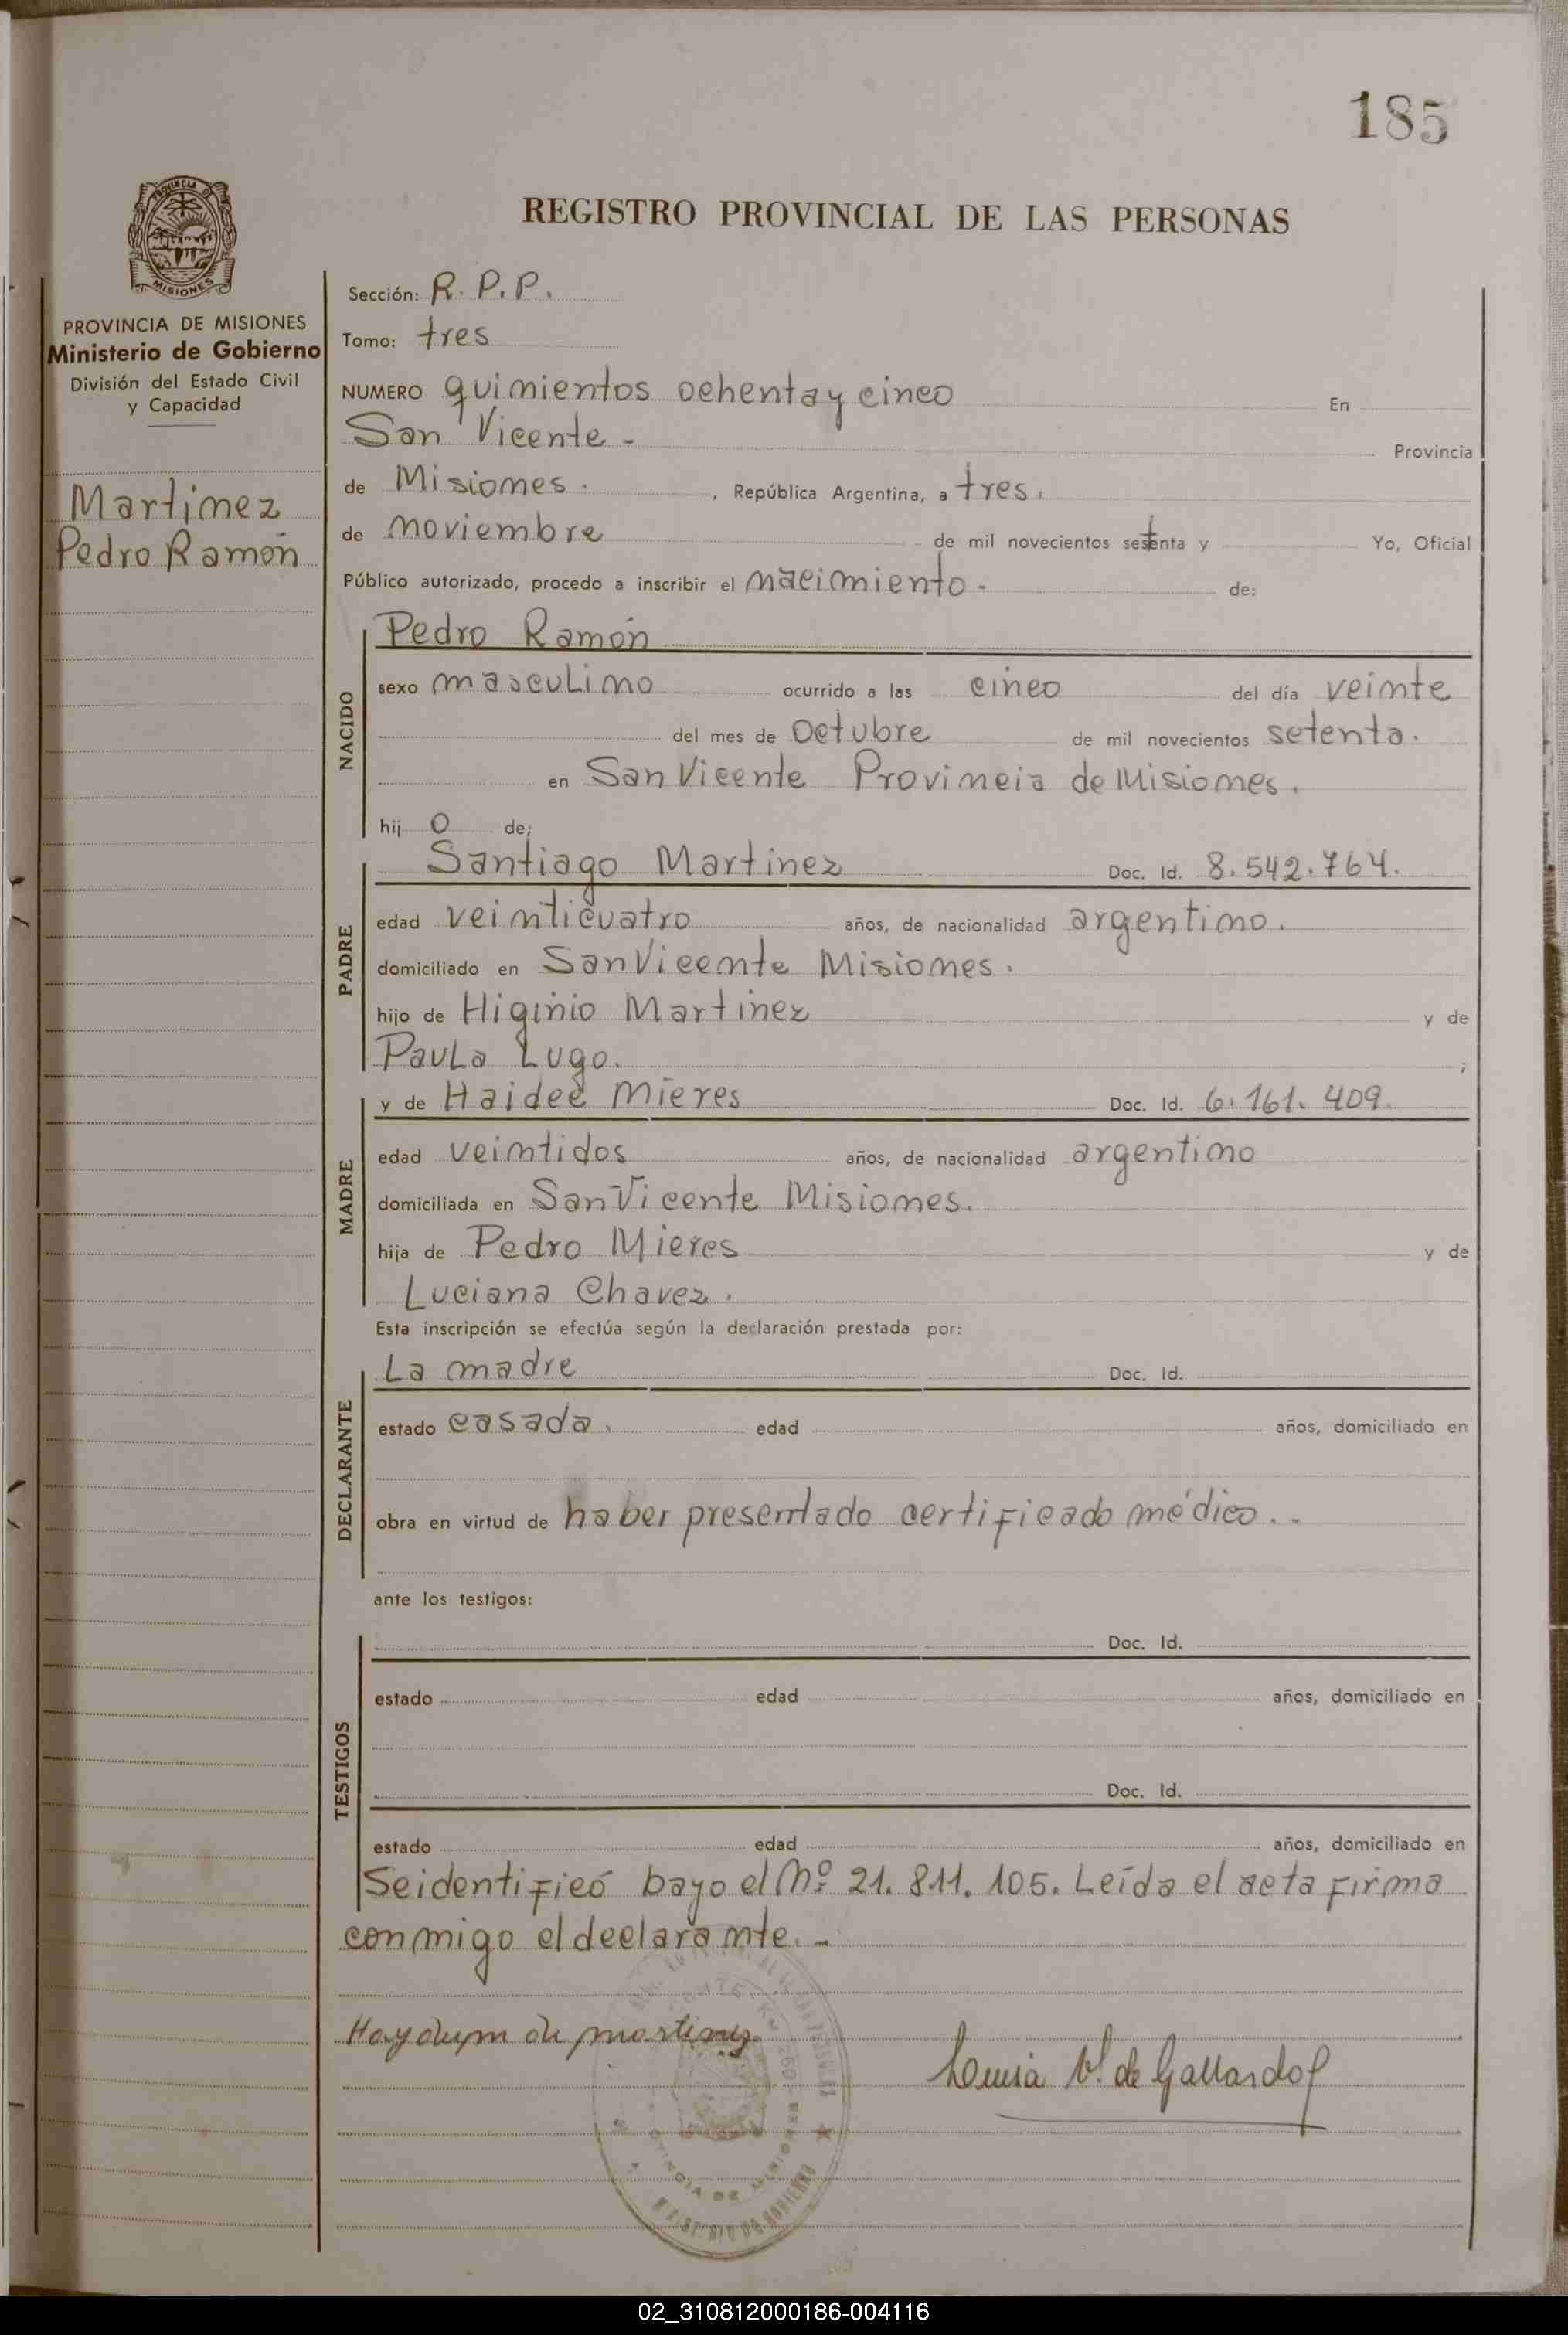 185
REGISTRO PROVINCIAL DE LAS PERSONAS
PROVINCIA DE MISIONES
Ministerio de Gobierno
División del Estado Civil
y Capacidad
Martinez
Pedro Ramón
Sección: R. P. P.
Tomo: tres
NUMERO quinientos ochenta y cinco En
San Vicente - Provincia
de Misiones. , República Argentina, a tres.
de noviembre de mil novecientos setenta y Yo, Oficial
Público autorizado, procedo a inscribir el nacimiento - de:
NACIDO
Pedro Ramón
sexo masculino ocurrido a las cinco del día veinte
del mes de Octubre de mil novecientos setenta.
en San Vicente Provincia de Misiones.
hij o de:
PADRE
Santiago Martinez Doc. Id. 8.542.764.
edad veinticuatro años, de nacionalidad argentino.
domiciliado en San Vicente Misiones.
hijo de Higinio Martinez y de
Paula Lugo. ;
MADRE
y de Haideé Mieres Doc. Id. 6.161.409.
edad veintidos años, de nacionalidad argentino
domiciliada en San Vicente Misiones.
hija de Pedro Mieres y de
Luciana Chavez.
Esta inscripción se efectúa según la declaración prestada por:
DECLARANTE
La madre Doc. Id.
estado casada. edad años, domiciliado en
obra en virtud de haber presentado certificado médico..
ante los testigos:
TESTIGOS
Doc. Id.
estado edad años, domiciliado en
Doc. Id.
estado edad años, domiciliado en
Se identificó bajo el Nº 21.811.105. Leída el acta firma
conmigo el declarante. -
de martinez
Luisa V. de Gallardo
PROVINCIA DE MISIONES
MINISTERIO DE GOBIERNO
02_310812000186-004116